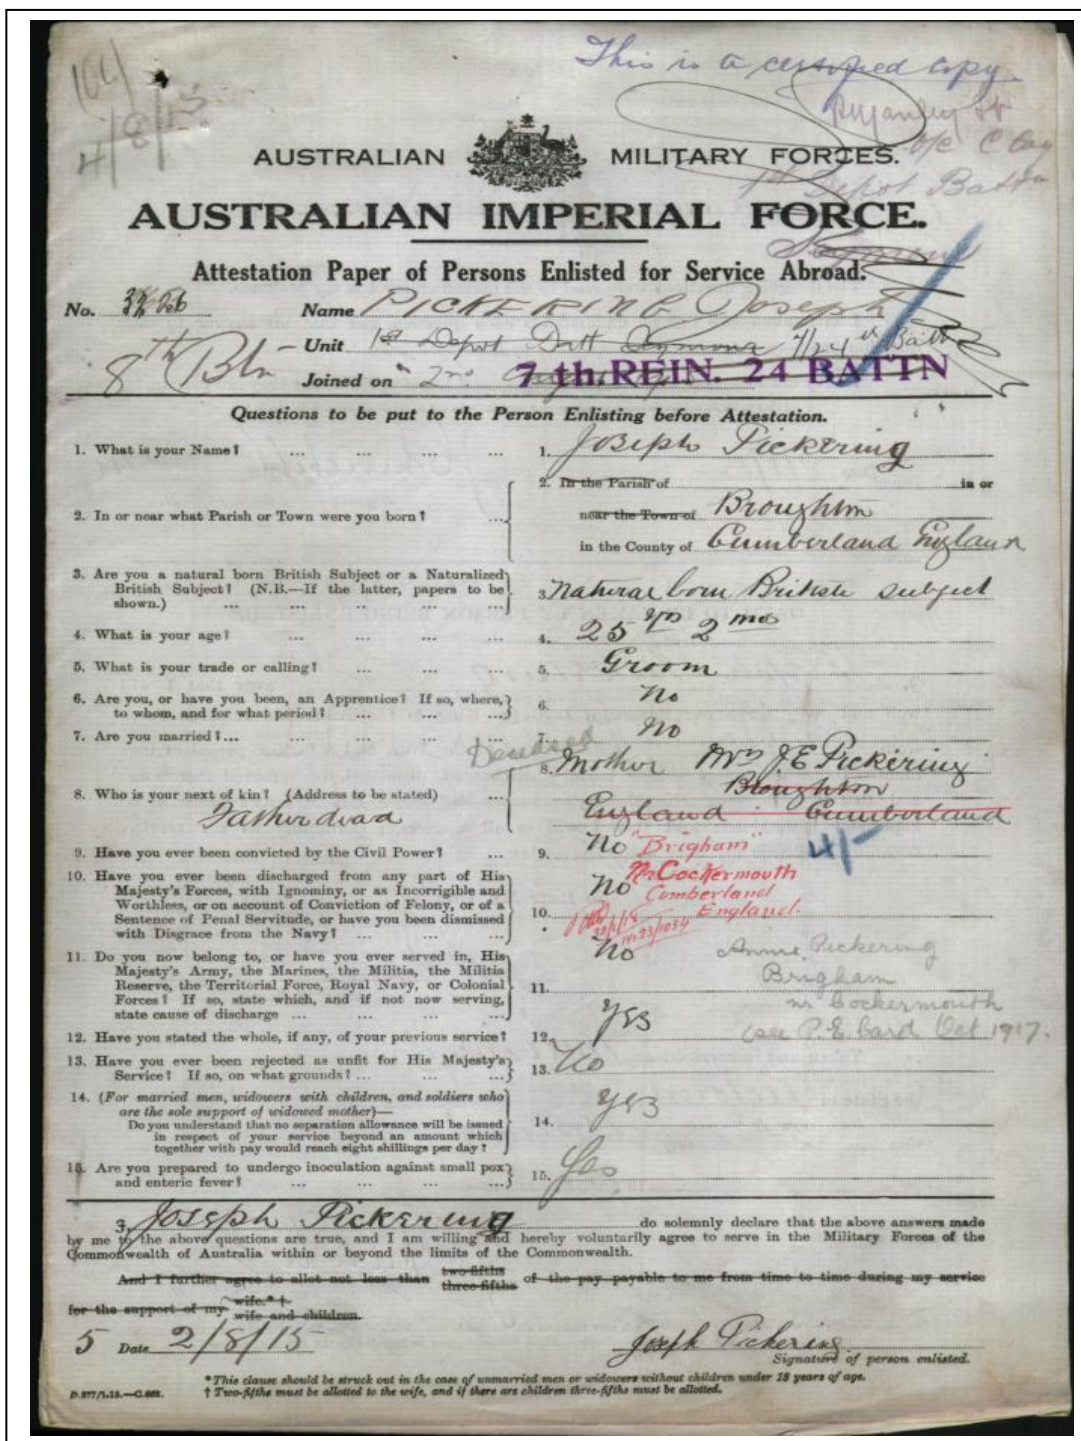 This is a certified copy.
4/8/15
O/C C Coy
1st Depot Battn
AUSTRALIAN MILITARY FORCES.
AUSTRALIAN IMPERIAL FORCE.
Attestation Paper of Persons Enlisted for Service Abroad.
No. Name PICKERING Joseph
8th Bln Unit 1st Depot Batt Seymour 7/24th Battn
Joined on 2nd August
7th REIN. 24 BATTN
Questions to be put to the Person Enlisting before Attestation.
1. What is your Name? ... ... ... ... 1. Joseph Pickering
2. In the Parish of in or
2. In or near what Parish or Town were you born? ... near the Town of Broughton
in the County of Cumberland England
3. Are you a natural born British Subject or a Naturalized
British Subject? (N.B.—If the latter, papers to be 3. Natural born British subject
shown.) ... ... .. ... ...
4. What is your age? ... ... ... ... 4. 25 yrs 2 mos
5. What is your trade or calling? ... ... ... 5. Groom
6. Are you, or have you been, an Apprentice? If so, where, 6. No
to whom, and for what period? ... ... ...
7. Are you married?... ... ... ... 7. No
Deceased
8. Mother Mrs J E Pickering
Broughton
8. Who is your next of kin? (Address to be stated) ...
Father dead England Cumberland
9. Have you ever been convicted by the Civil Power? ... 9. No "Brigham" 4/-
10. Have you ever been discharged from any part of His Nr Cockermouth
Majesty's Forces, with Ignominy, or as Incorrigible and No Cumberland
Worthless, or on account of Conviction of Felony, or of a England.
Sentence of Penal Servitude, or have you been dismissed 10.
with Disgrace from the Navy? ... ... ...
11. Do you now belong to, or have you ever served in, His No Annie Pickering
Majesty's Army, the Marines, the Militia, the Militia Brigham
Reserve, the Territorial Force, Royal Navy, or Colonial 11.
Forces? If so, state which, and if not now serving, nr Cockermouth
state cause of discharge ... ... ... ... Yes (see P.E. Card Oct 1917.
12. Have you stated the whole, if any, of your previous service? 12.
13. Have you ever been rejected as unfit for His Majesty's 13. No
Service? If so, on what grounds? ... ... ...
14. (For married men, widowers with children, and soldiers who Yes
are the sole support of widowed mother)—
Do you understand that no separation allowance will be issued 14.
in respect of your service beyond an amount which
together with pay would reach eight shillings per day?
15. Are you prepared to undergo inoculation against small pox 15. Yes
and enteric fever? ... ... ... ...
I, Joseph Pickering do solemnly declare that the above answers made
by me to the above questions are true, and I am willing and hereby voluntarily agree to serve in the Military Forces of the
Commonwealth of Australia within or beyond the limits of the Commonwealth.
And I further agree to allot not less than two-fifths three-fifths of the pay payable to me from time to time during my service
for the support of my wife.*† wife and children.
5 Date 2/8/15 Joseph Pickering
Signature of person enlisted.
* This clause should be struck out in the case of unmarried men or widowers without children under 18 years of age.
D.977/1.15.—C.662. † Two-fifths must be allotted to the wife, and if there are children three-fifths must be allotted.